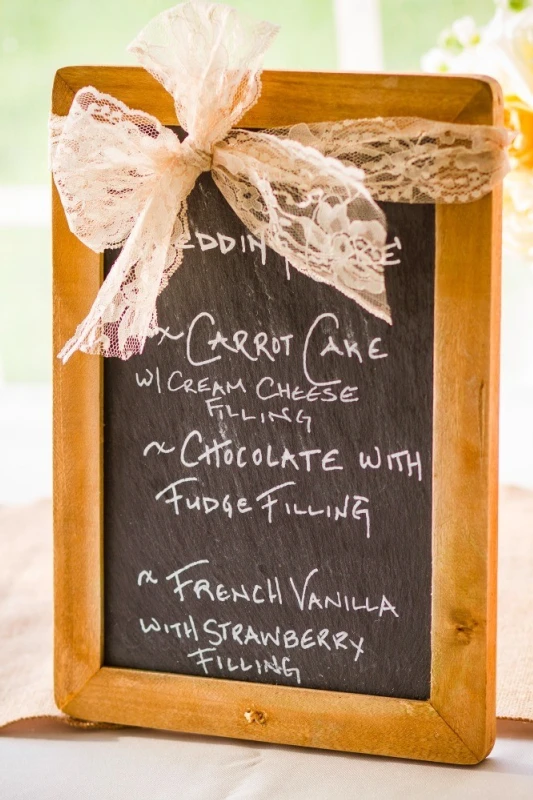 ~ CARROT CAKE
W/ CREAM CHEESE
FILLING
~ CHOCOLATE WITH
FUDGE FILLING
~ FRENCH VANILLA
WITH STRAWBERRY
FILLING